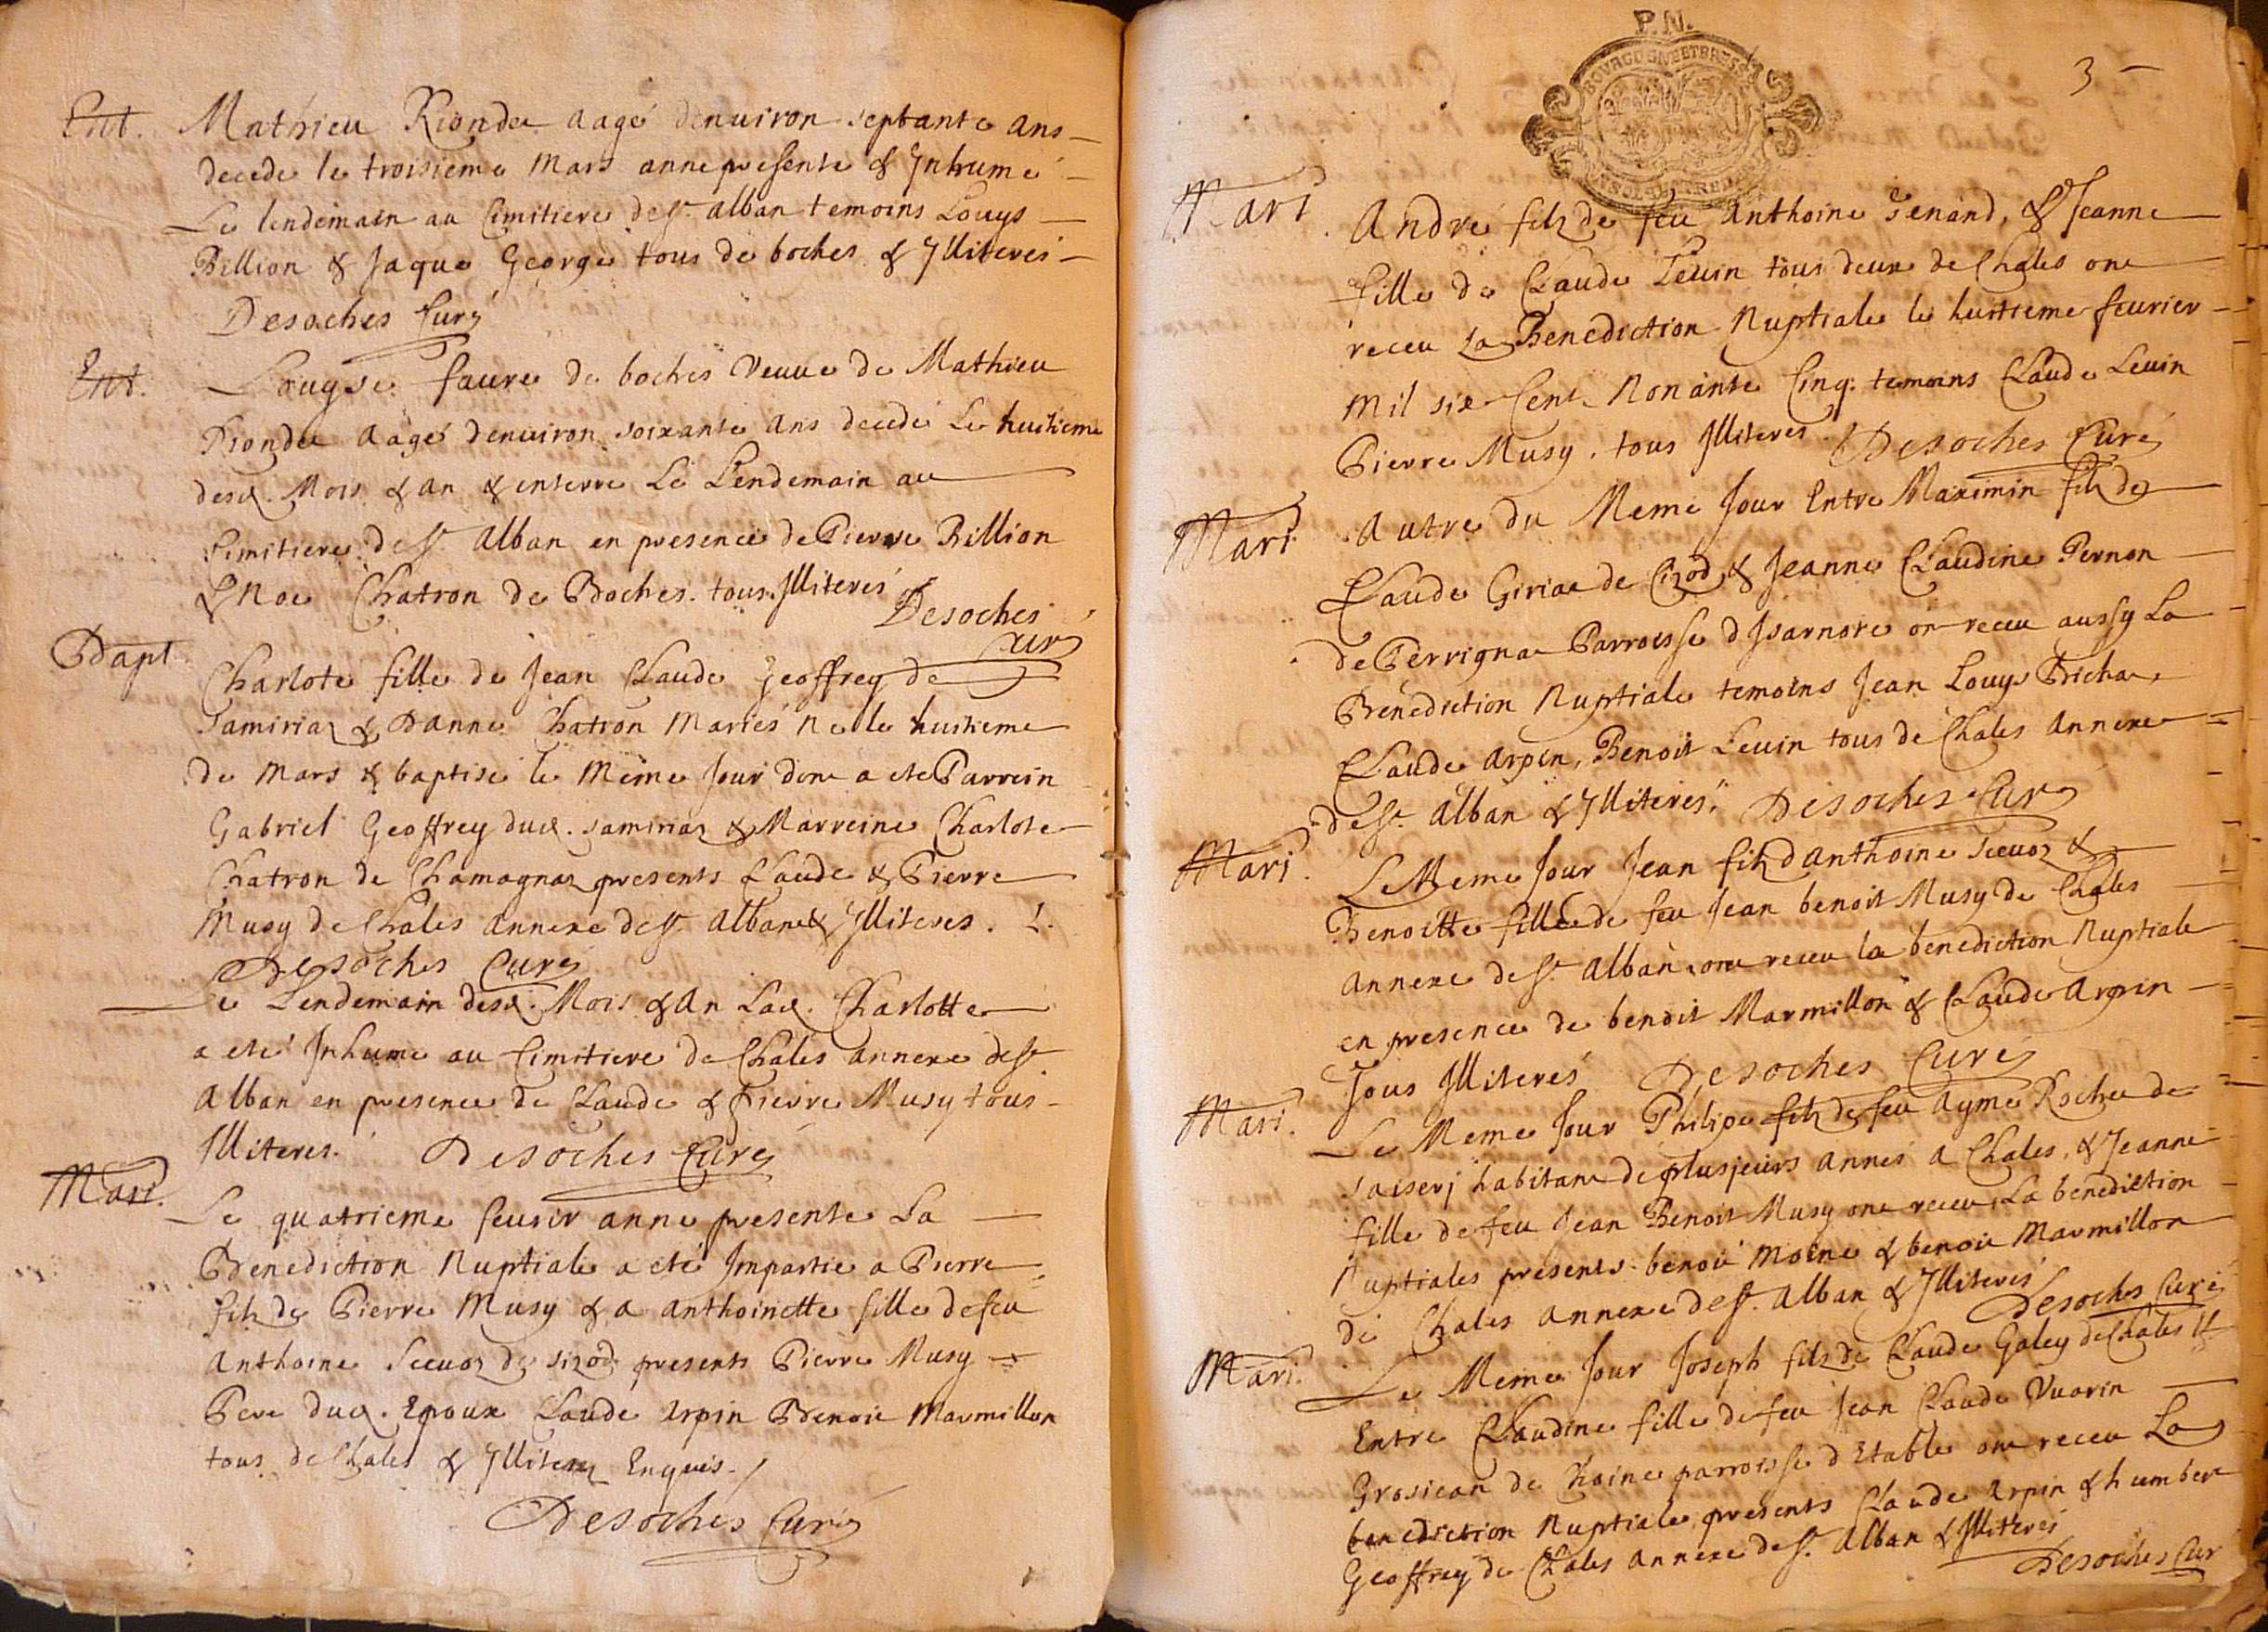 Ent. Mathieu Rionde aagé denuiron septante ans
decede le troisieme Mars anne presente & Inhumé
Le lendemain au Cimitiere de St. alban temoins Louys
Billion & Jaque George tous de boches & Illiterés
Desoches Curé
Ent. Louyse faure de boches Veuue de Mathieu
Rionde aagé denuiron soixante ans decedé Le huitieme
desd. Mois & an & enterré Le Lendemain au
Cimitiere de St. alban en presence de Pierre Billion
& Noe Chatron de Boches. tous Illiterés
Desoches Curé
Bapt. Charlote fille de Jean Claude Geoffrey de
Samiriaz & Danne Chatron Mariés Ne le huitieme
de Mars & baptisé le Même Jour dont a eté Parrein
Gabriel Geoffrey dud. Samiriaz & Marreine Charlote
Chatron de Chamagnaz presents Claude & Pierre
Musy de Chales annexe de St. Alban & Illiteres.
Desoches Curé
Le Lendemain desd. Mois & an Lad. Charlotte
a eté Inhume au Cimitiere de Chales annexe de St.
Alban en presence de Claude & Pierre Musy tous
Illiteres. Desoches Curé
Mari. Le quatrieme feurier anne presente La
Benediction Nuptiale a eté Impartie a Pierre
filz de Pierre Musy & a anthoinette fille de feu
anthoine Sceuoz de Sizod presents Pierre Musy
Pere dud. Epoux Claude Arpin Benoit Marmillon
tous de Chales & Illiterez Enquis.
Desoches Curé
P.N.
BOVRGOGNE ET BRESSE
3
Mari. André filz de feu Anthoine Tenand, & Jeanne
fille de Claude Leuin tous deux de Chales ont
receu La Benediction Nuptiale le huitieme feurier
Mil six Cent Nonante Cinq. temoins Claude Leuin
Pierre Musy. tous Illiteres. Desoches Curé
Mari. Autre du Meme Jour Entre Maximin filz de
Claude Giriat de Cizod & Jeanne Claudine Pernon
de Perrignat Parroisse d Isarnore on receu aussy La
Benediction Nuptiale temoins Jean Louys Bichat,
Claude Arpin, Benoit Leuin tous de Chales annexe
de St. alban & Illiterés. Desoches Curé
Mari. Le Meme Jour Jean filz d anthoine Sceuoz &
Benoitte fille de feu Jean benoit Musy de Chales
annexe de St. alban ont receu la benediction Nuptiale
en presence de benoit Marmillon & Claude Arpin
Tous Illiterés Desoches Curé
Mari. Le Meme Jour Philipe filz de feu Ayme Rochet de
habitant de plusjeurs annés a Chales, & Jeanne
fille de feu Jean Benoit Musy ont receu La benediction
Nuptiales presents benoit Moine & benoit Marmillon
de Chales annexe de St. Alban & Illiterés Desoches Curé
Mari. Le Meme Jour Joseph filz de Claude Galey de Chales
Entre Claudine fille de feu Jean Claude Vuarin
Grosjean de Choine parroisse d Etable ont receu La
benediction Nuptiale presents Claude Arpin & humbert
Geoffrey de Chales annexe de St. Alban & Illiterés
Desoches Cur